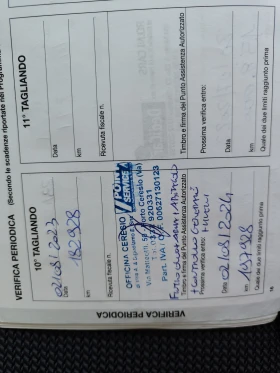 VERIFICA PERIODICA (Secondo le scadenze riportate nel Programma
10° TAGLIANDO
02/08/2023
Data
182928
km
Ricevuta fiscale n.
OFFICINA CERESIO
POINT SERVICE
Porto Ceresio (Va)
920331
Part. IVA 00627130123
Timbro e firma del Punto Assistenza Autorizzato
Prossima verifica entro:
02/08/2024
Data
197928
km
Quale dei due limiti raggiunto prima
18
11° TAGLIANDO
Data
km
Ricevuta fiscale n.
Timbro e firma del Punto Assistenza Autorizzato
Prossima verifica entro:
Data
km
Quale dei due limiti raggiunto prima
VERIFICA PERIODICA